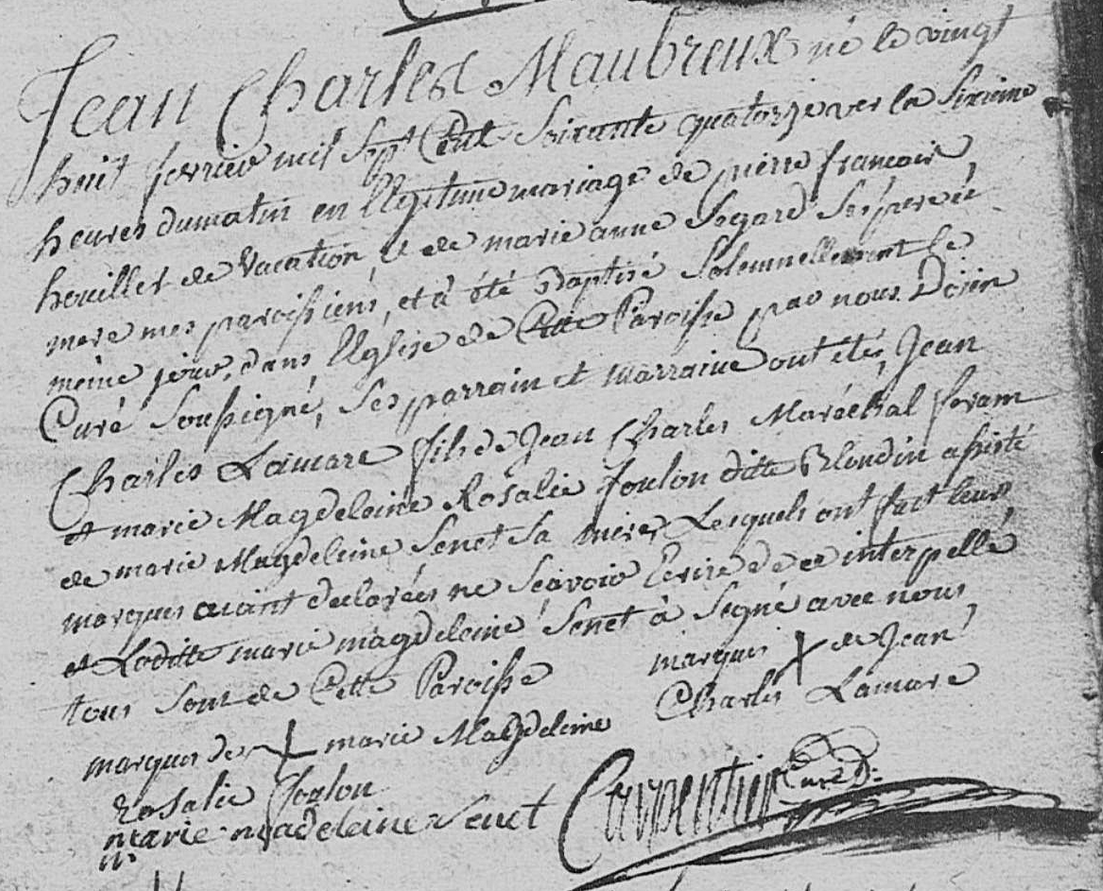 Jean Charles Maubreux né le vingt
huit fevrier mil sept Cent soixante quatorze ver la sixieme
heures du matin en legitime mariage de pierre francois
houiller de vacation, et de marie anne Segard ses pere et
mere mes paroissiens, et à été Baptisé solemnellement le
même jour, dans l'Eglise de Cette Paroisse par nous Doien
Curé soussigné, ses parrain et marraine ont étés, Jean
Charles Lamare fils de Jean Charles Maréchal feram
et marie Magdeleine Rosalie foulon ditte Blondin assisté
de marie Magdeleine Senet sa mere, Lesquels ont fait leur
marques aiant declarées ne sçavoir Ecrire de ce interpellé
et Laditte marie magdeleine Senet à segné avec nous
tous sont de Cette Paroisse marques de Jean
Charles Lamare
marques de marie Magdeleine
Rosalie foulon
marie madeleine Senet Carpentier Curé D: